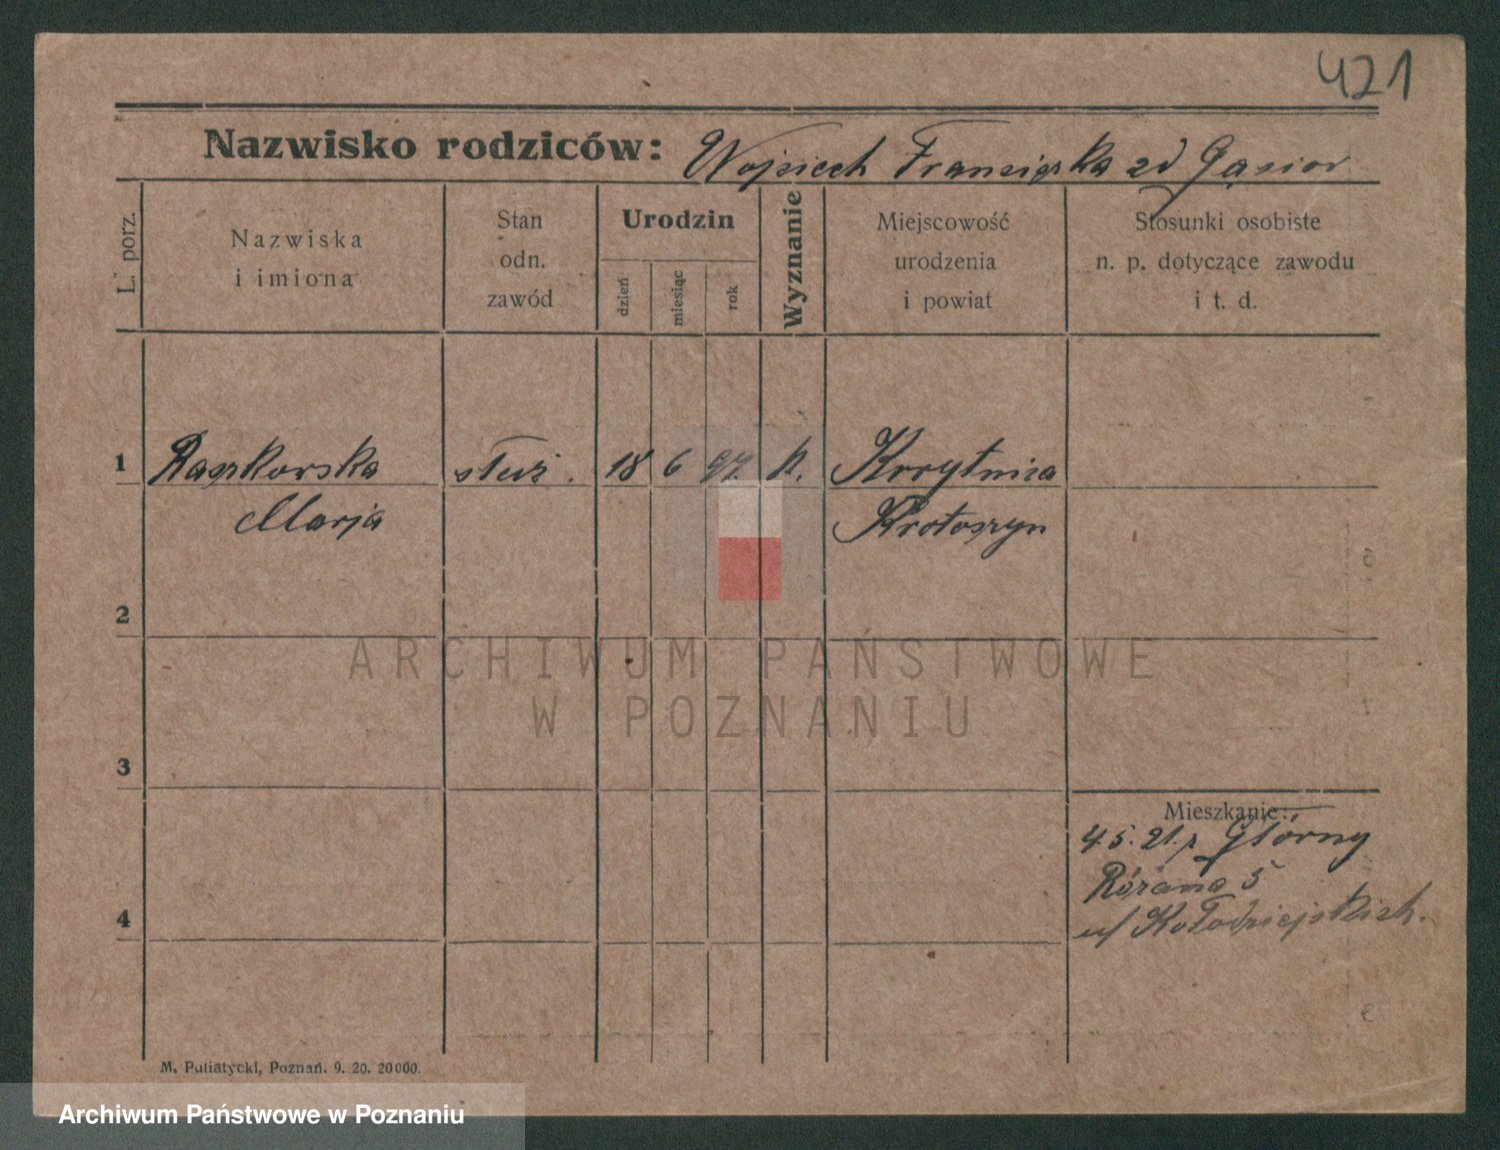 421
Nazwisko rodziców: Wojciech Franciszka zd Gąsior
L. porz.
Nazwiska
i imiona
Stan
odn.
zawód
Urodzin
dzień
miesiąc
rok
Wyznanie
Miejscowość
urodzenia
i powiat
Stosunki osobiste
n. p. dotyczące zawodu
i t. d.
1 Raszkowska służ. 18 6 97. k.
Marja Krotoszyn
2
ARCHIWUM PAŃSTWOWE
W POZNANIU
3
Mieszkanie:
4.5.21. z Główny
Różana 5
u/ Kołodziejskich.
4
M. Putiatycki, Poznań. 9. 20. 20000.
Archiwum Państwowe w Poznaniu